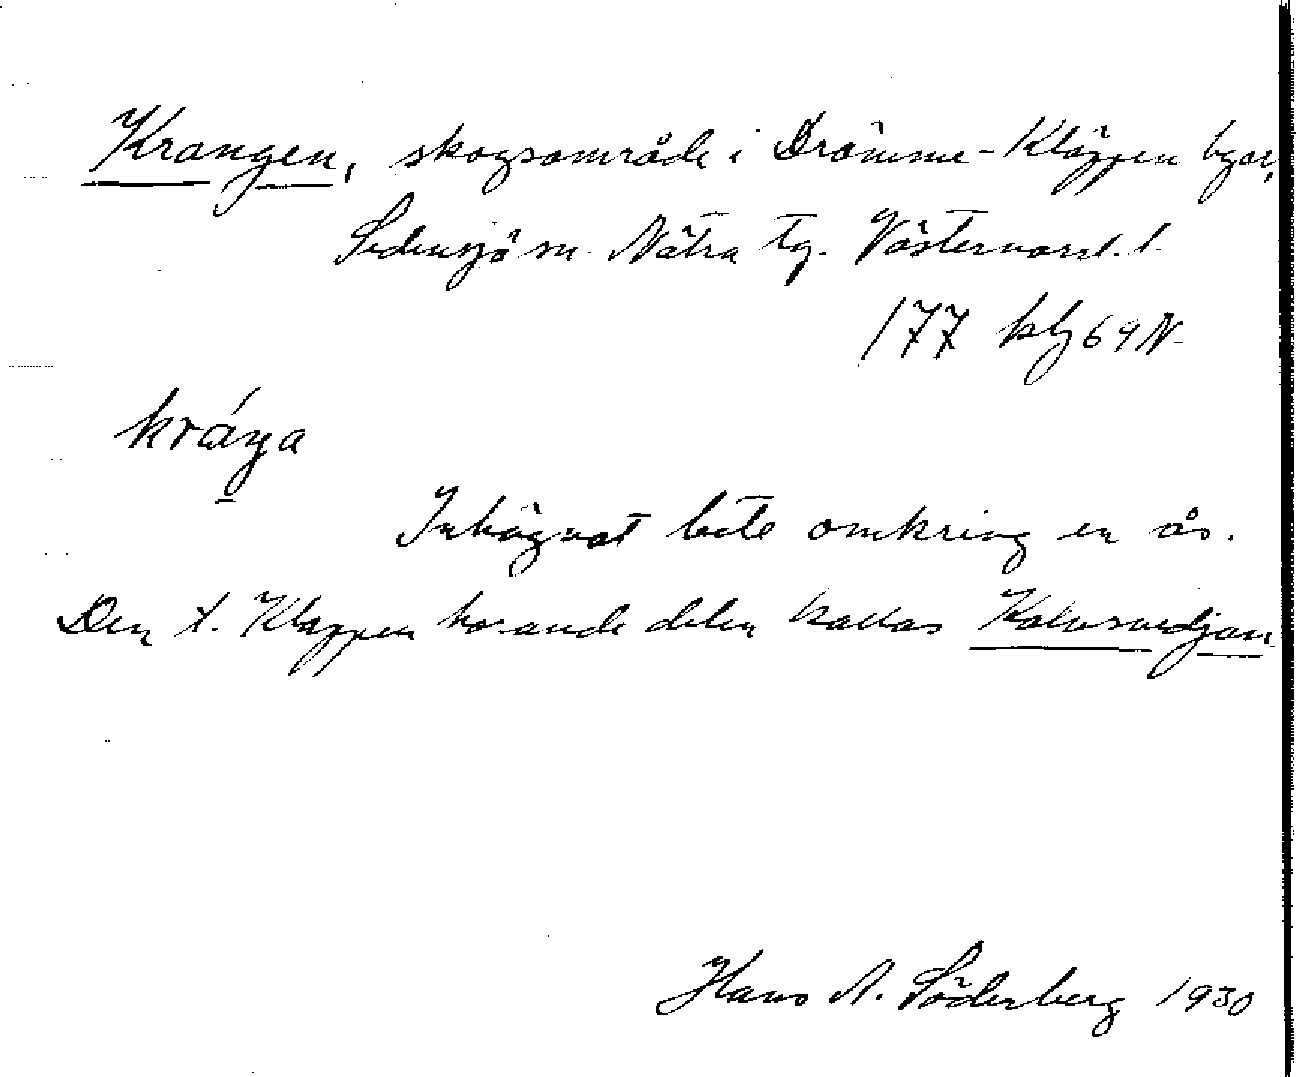 Krangen, skogsområde i Drömme-Kläppen byar,
Sidensjö sn. Nätra tg. Västernorrl. l.
177 kbj 69 N.
kráŋa
Inhägnat bete omkring en ås.
Den t. Kläppen hörande delen kallas Kalvsvedjan
Hans A. Söderberg 1930